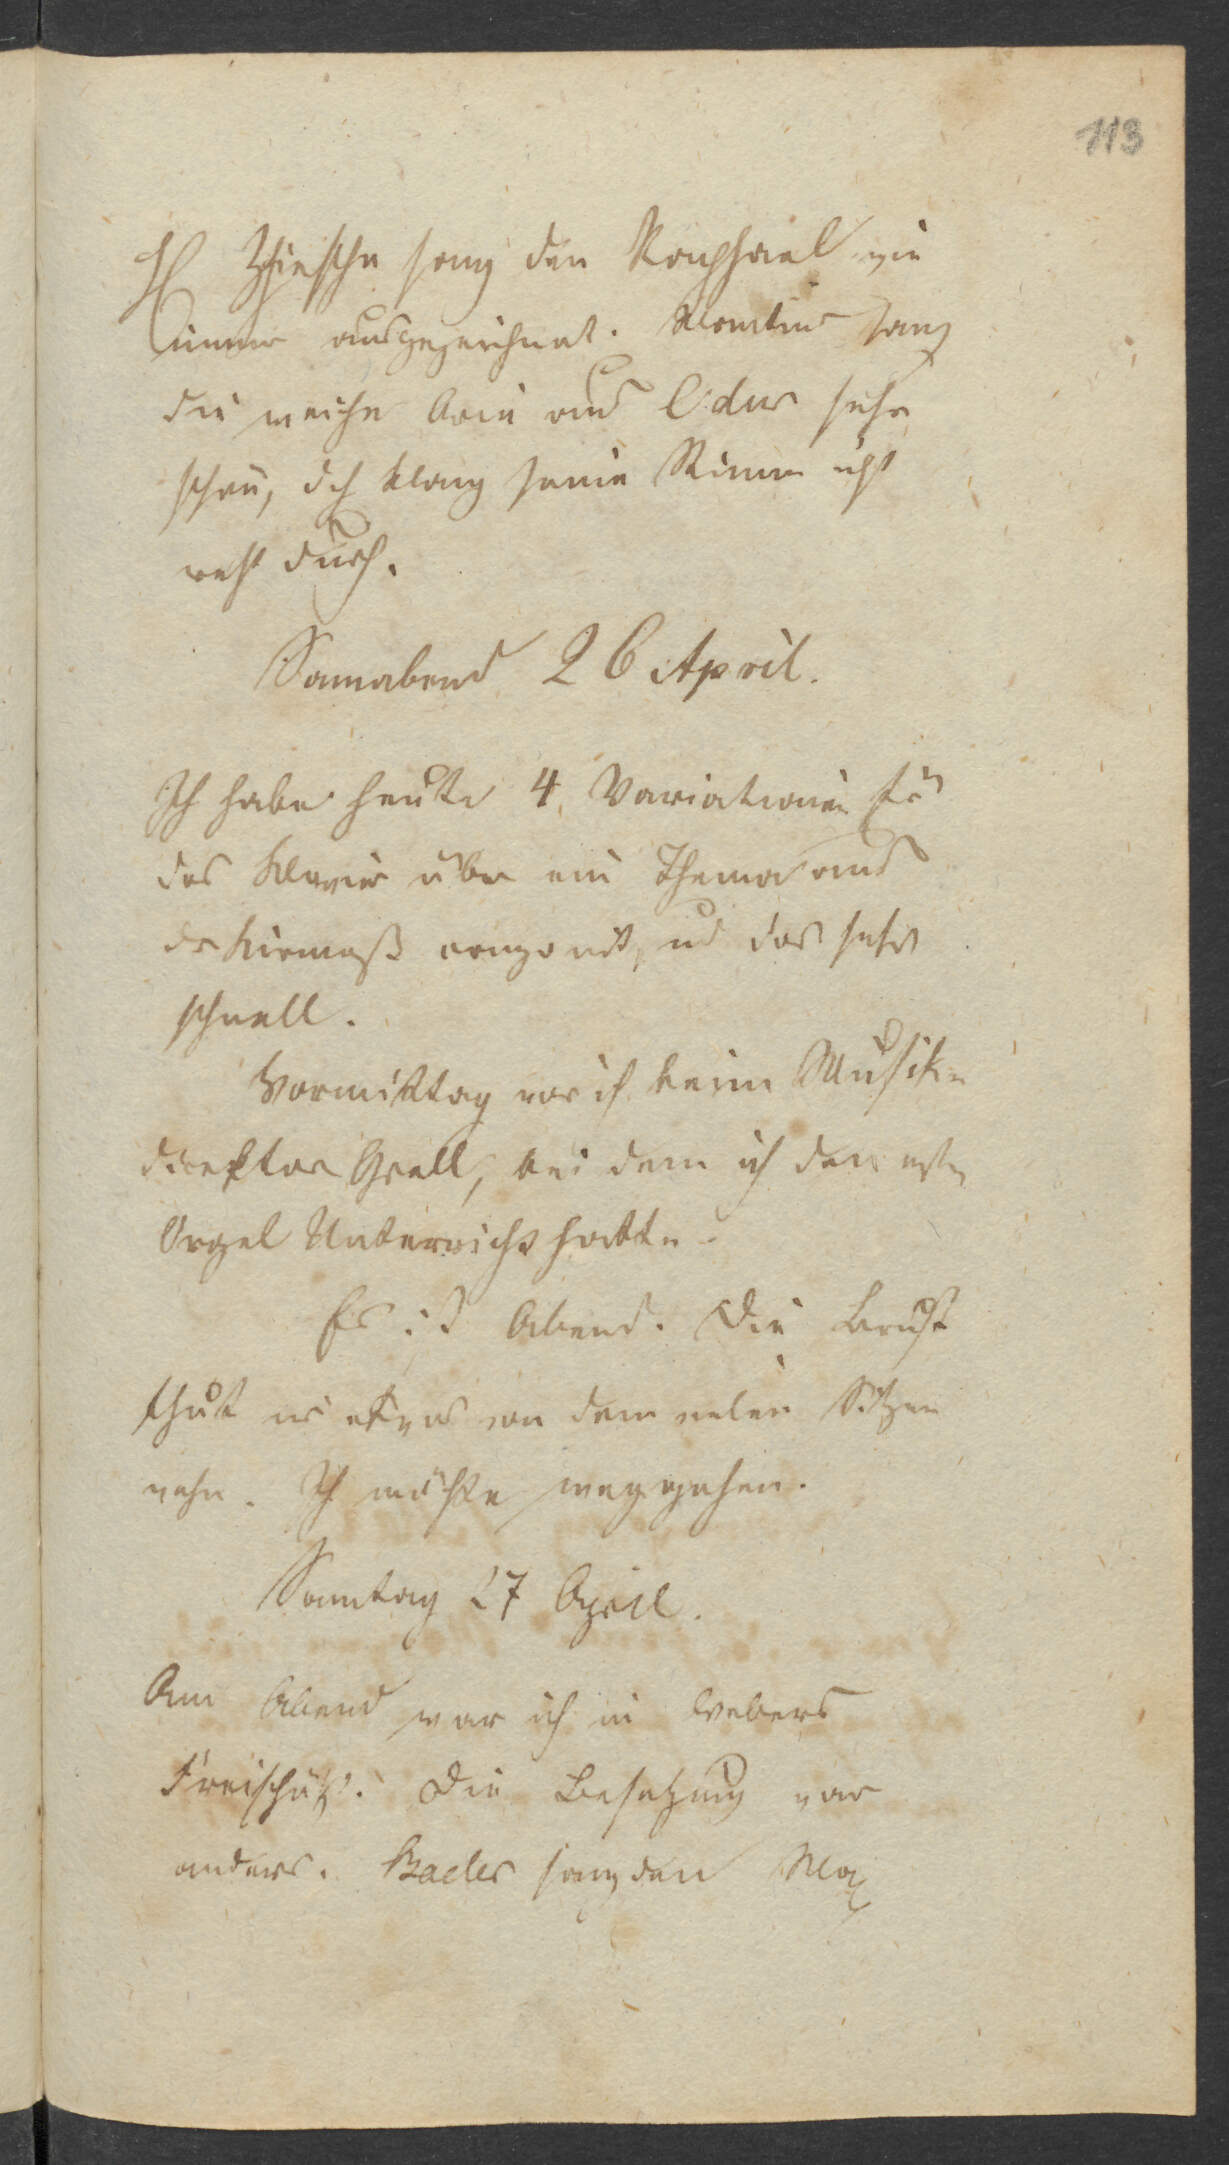 113
H Zschiesche sang den Raphael wie
immer ausgezeichnet. Mantius sang
die weiche Arie aus C dur sehr
schön, doch klang seine Stimme nicht
recht durch.
Sonnabend 26 April.
Ich habe heute 4 Variationen für
das Klavier über ein Thema aus
der Kirmeß componirt, und das sehr
schnell.
Vormittag war ich beim Musik
direktor Grell, bei dem ich den ersten
Orgel Unterricht hatte.
Es ist Abend. Die Brust
thut mir etwas von dem vielen Sitzen
wehe. Ich möchte weggehen.
Sonntag 27 April.
Am Abend war ich in Webers
Freischütz. Die Besetzung war
anders. Bader sang den Max